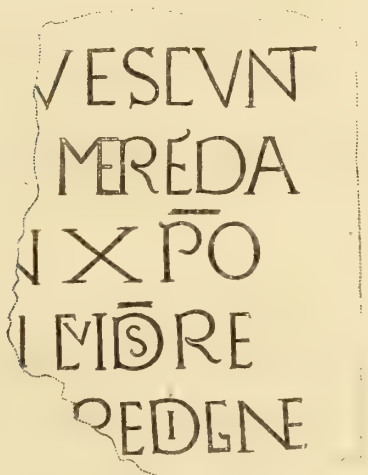 VESCVNT
MEREDA
N XP̅O
I EMD̅S̅RE
REDIGNE